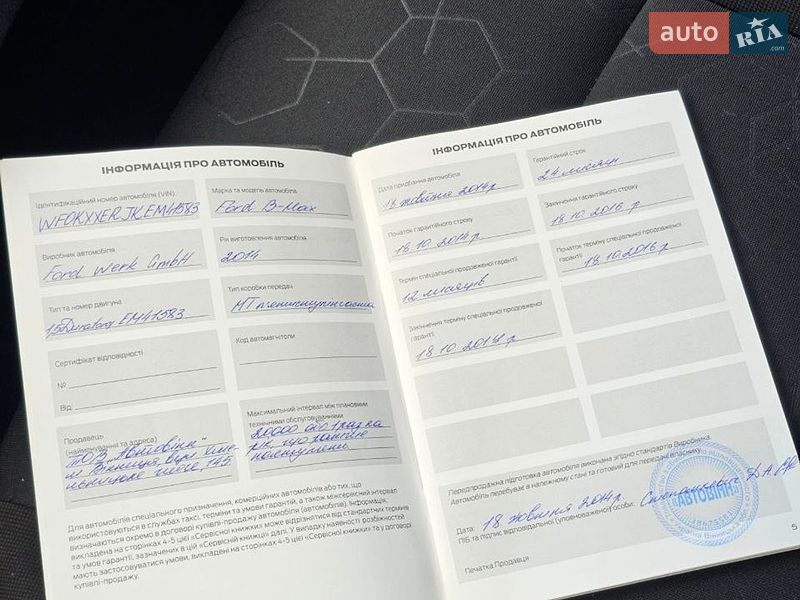 auto RIA .com
ІНФОРМАЦІЯ ПРО АВТОМОБІЛЬ
Ідентифікаційний номер автомобіля (VIN)
WF0KXXERJKEM41583
Марка та модель автомобіля
Ford B-Max
Виробник автомобіля
Ford Werk GmbH
Рік виготовлення автомобіля
2014
Тип та номер двигуна
1.5 Duratorq EM41583
Тип коробки передач
МТ п'ятиступінчаста
Сертифікат відповідності
№
Від
Код автомагнітоли
Продавець
(найменування та адреса)
ТОВ "Автовінн"
м Вінниця, вул Хмельницьке шосе, 145
Максимальний інтервал між плановими
технічними обслуговуваннями
20000 або 1 раз на
рік що раніше
наступить
Для автомобілів спеціального призначення, комерційних автомобілів або тих, що
використовуються в службах таксі, терміни та умови гарантії, а також міжсервісний інтервал
визначаються окремо в договорі купівлі-продажу автомобіля (автомобілів). Інформація,
викладена на сторінках 4-5 цієї «Сервісної книжки» може відрізнятися від стандартних термінів
та умов гарантії, зазначених в цій «Сервісній книжці» далі. У випадку наявності розбіжностей
мають застосовуватися умови, викладені на сторінках 4-5 цієї «Сервісної книжки» та у договорі
купівлі-продажу.
ІНФОРМАЦІЯ ПРО АВТОМОБІЛЬ
Дата придбання автомобіля
18 жовтня 2014р
Гарантійний строк
24 місяці
Початок гарантійного строку
18.10.2014 р.
Закінчення гарантійного строку
18.10.2016 р.
Термін спеціальної продовженої гарантії
12 місяців
Початок терміну спеціальної продовженої
гарантії
18.10.2016 р.
Закінчення терміну спеціальної продовженої
гарантії
18.10.2017 р.
Передпродажна підготовка автомобіля виконана згідно стандартів Виробника.
Автомобіль перебуває в належному стані та готовий для передачі власнику.
Дата: 18 жовтня 2014р.
ПІБ та підпис відповідальної (уповноваженої) особи:
"АВТОВІНН"
Печатка Продавця
5